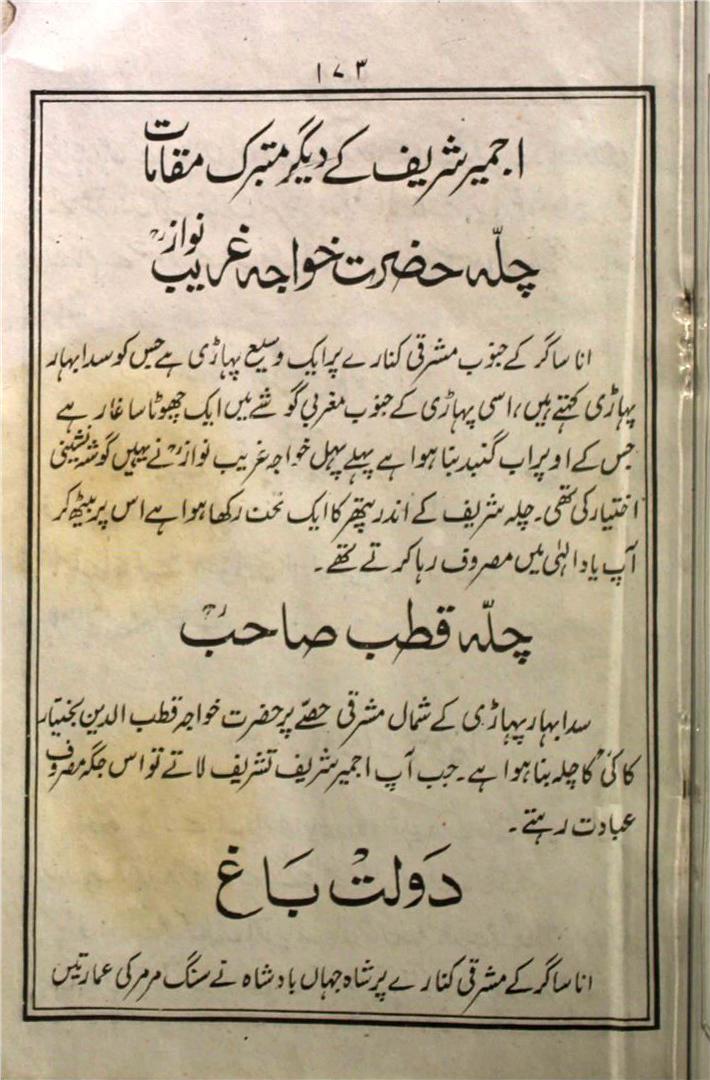 ۱۷۳
اجمیر شریف کے دیگر متبرک مقامات
چلّہ حضرت خواجہ غریب نوازؒ
انا ساگر کے جنوب مشرقی کنارے پر ایک وسیع پہاڑی ہے جس کو سدا بہار
پہاڑی کہتے ہیں، اسی پہاڑی کے جنوب مغربی گوشے میں ایک چھوٹا سا غار ہے
جس کے اوپر اب گنبد بنا ہوا ہے پہلے پہل خواجہ غریب نوازؒ نے یہیں گوشہ نشینی
اختیار کی تھی۔ چلہ شریف کے اندر پتھر کا ایک تخت رکھا ہوا ہے اس پر بیٹھ کر
آپ یاد الٰہی میں مصروف رہا کرتے تھے۔
چلّہ قطب صاحبؒ
سدا بہار پہاڑی کے شمال مشرقی حصّے پر حضرت خواجہ قطب الدین بختیار
کاکیؒ کا چلہ بنا ہوا ہے۔ جب آپ اجمیر شریف تشریف لاتے تو اس جگہ مصروف
عبادت رہتے۔
دَولتْ بَاغ
انا ساگر کے مشرقی کنارے پر شاہ جہاں بادشاہ نے سنگ مرمر کی عمارتیں